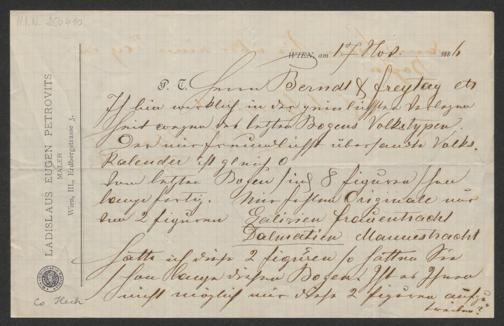 WIEN, am 17 Nov. 1886
P. T. Herrn Berndt & Freytag etc
Ich bin wirklich in der peinlichsten Verlegen
heit wegen des letzten Bogens Volkstypen.
Der mir freundlichst übersandte Volks-
Kalender ist gleich 0
Vom letzten Bogen sind 8 Figuren schon
lange fertig. Mir fehlen Originale nur
zu 2 Figuren Galizien Frauentracht
Dalmatien Mannestracht
Hätte ich diese 2 Figuren so hätten Sie
schon lange diesen Bogen. Ist es Ihnen
nicht möglich mir diese 2 Figuren aufzu
treiben?
LADISLAUS EUGEN PETROVITS
MALER
Wien, III., Erdbergstrasse 5.